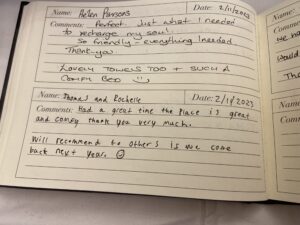 Name: Helen Parsons Date: 2/11/2023
Comments: Perfect Just what I needed
to recharge my soul!
So friendly - everything I needed
Thank you
Lovely towels too + such a
comfy bed
Name: Thomas and Rochelle Date: 2/11/2023
Comments: Had a great time the place is great
and comfy thank you very much.
Will recommend to others is we come
back next year.
Name:
Comm
we ha
would
Than
Name
Com